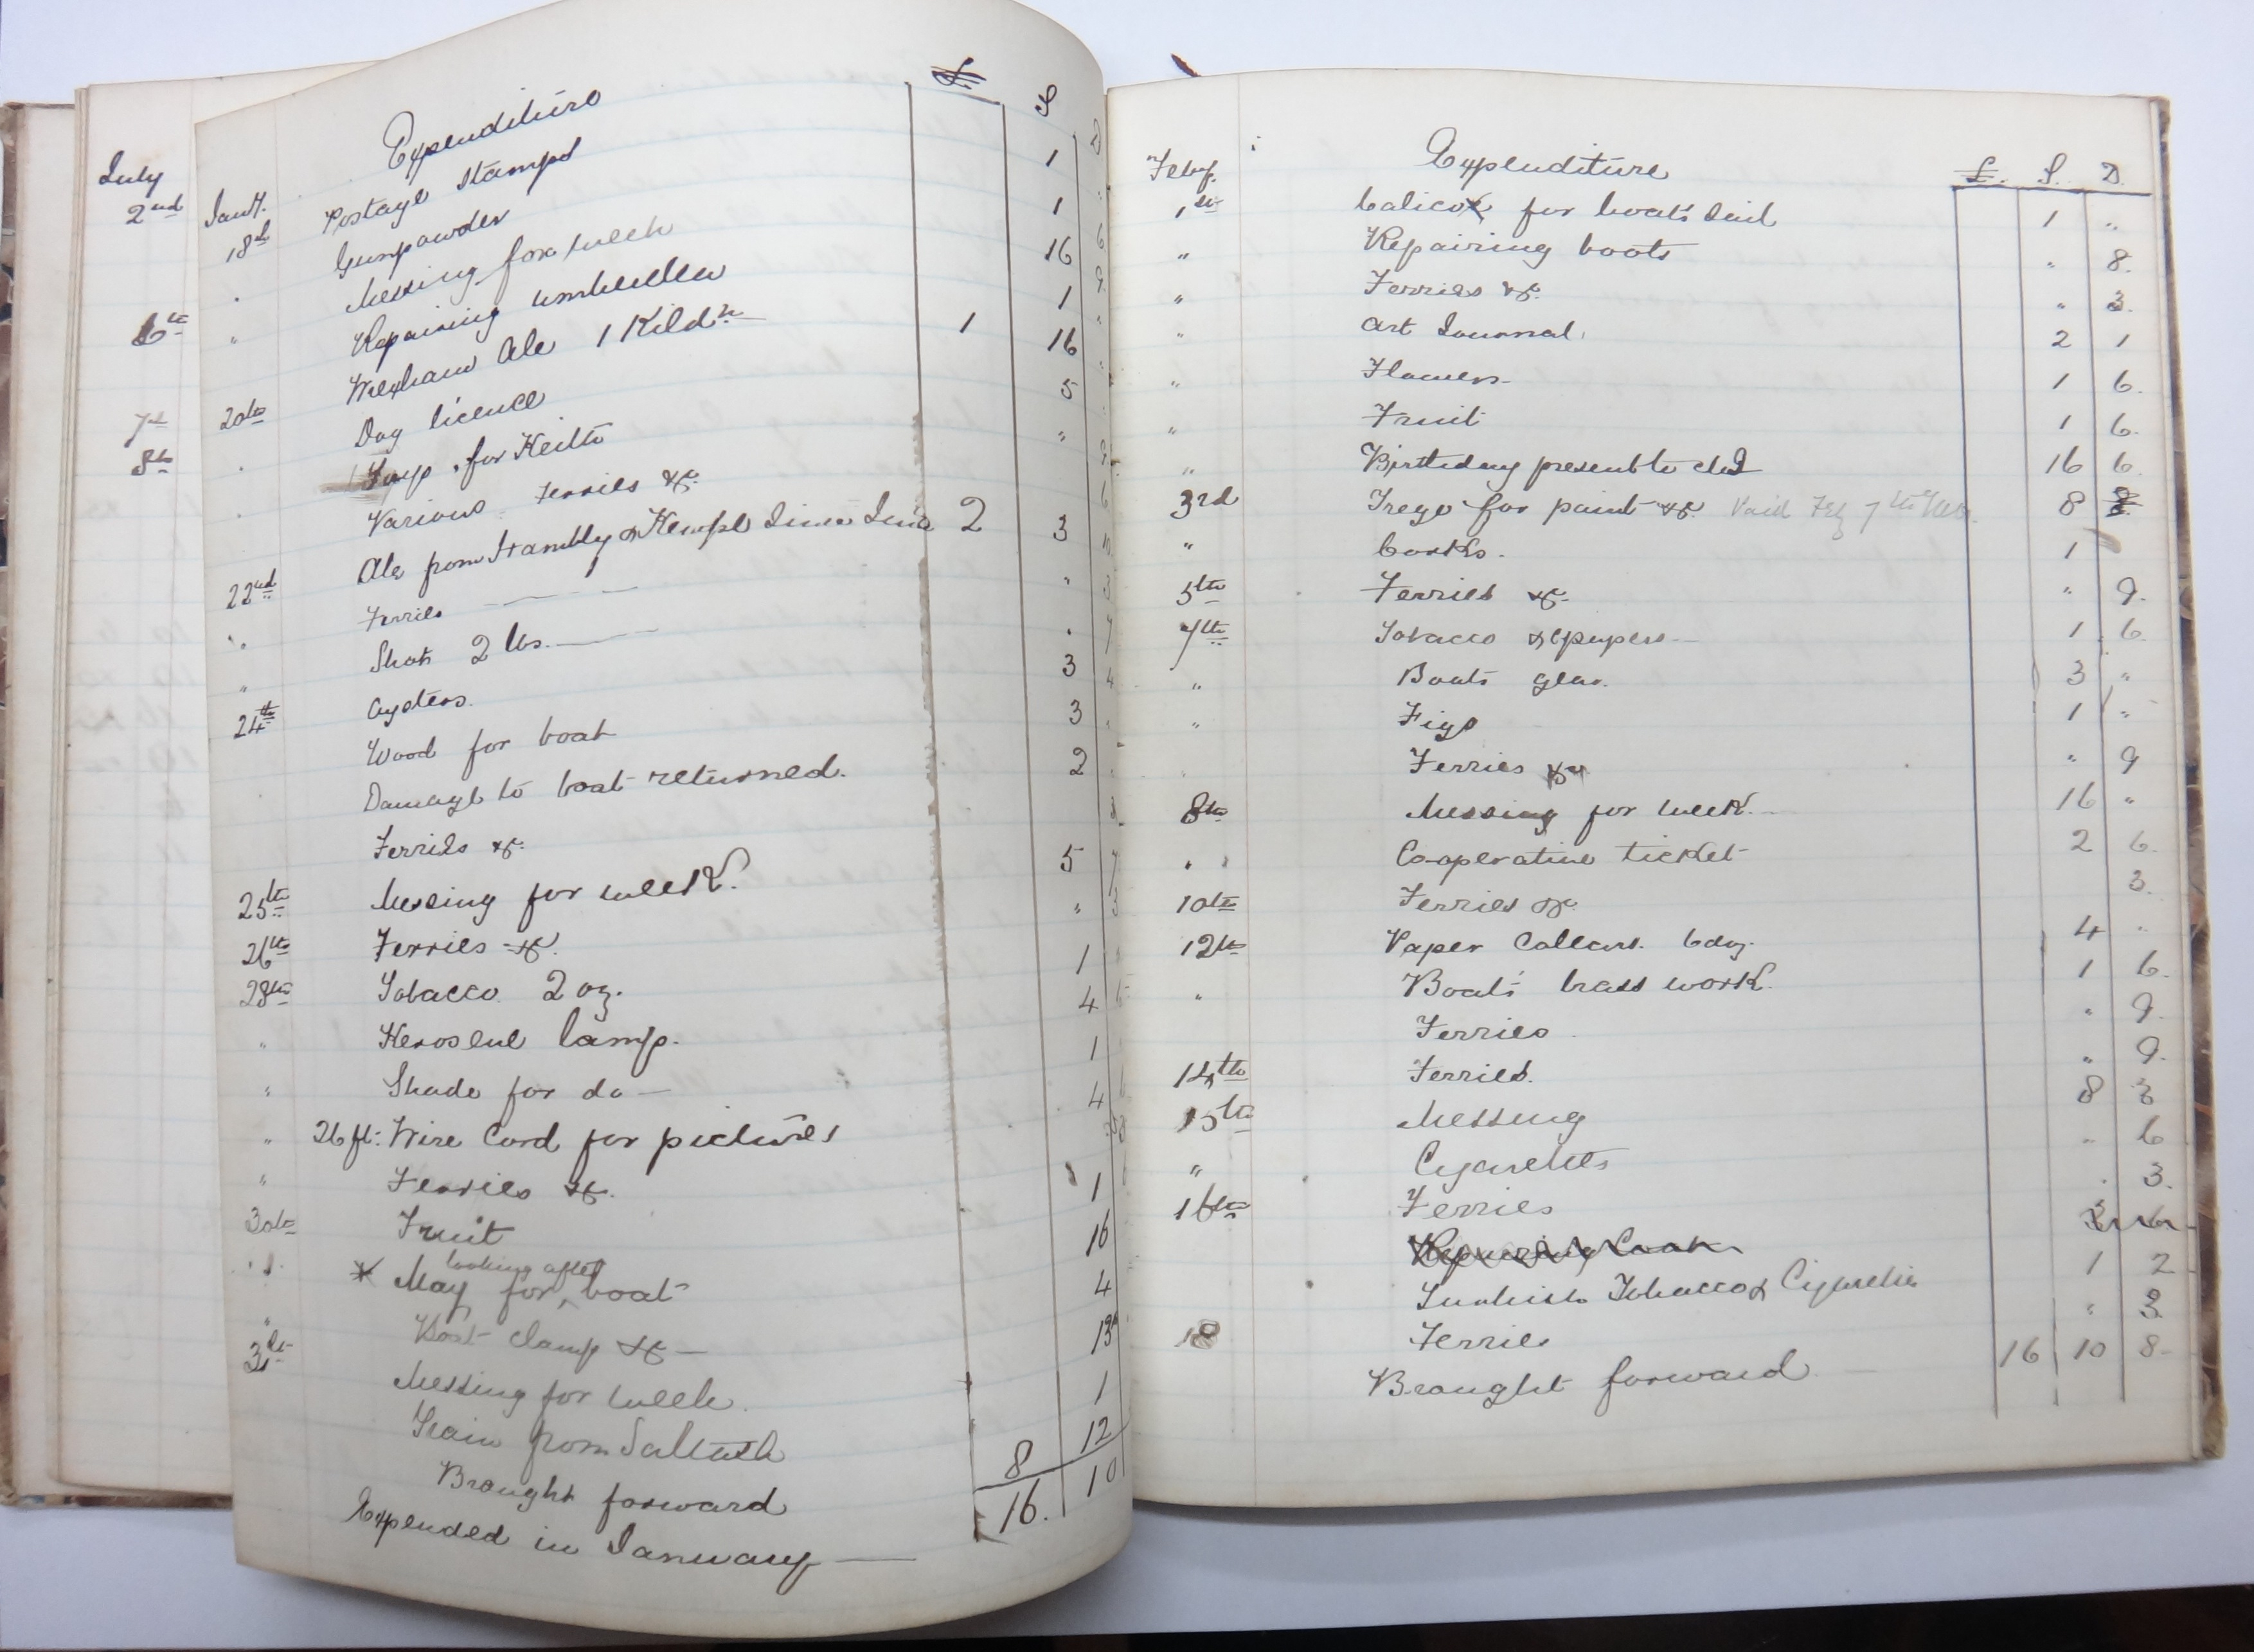 July
2nd
6th
7th
8th
Expenditure £ S D
Jany.
18th Postage stamps 1
Gunpowder 1 6
Messing for week 16 9
" Repairing umbrella 1 "
Wrexham Ale 1 Kildn 1 16
20th Dog licence 5
for Keith " 9
Various ferries &c. 6
Ale from Hambly & Kempe since 2 3
22nd Ferries " 3
Shot 2 lbs.
" Oysters. 3 4
24th Wood for boat 3
Damage to boat returned. 2
Ferries &c.
25th Messing for week. 5 7
26th Ferries &c. "
28th Tobacco 2 oz. 1
" Kerosene lamp. 4 6
" Shade for do 1
" 26 ft: Wire Cord for pictures 4
" Ferries &c.
30th Fruit 1
* May for looking after boat 16
" clamp &c 4
31st Messing for week. 13
Train from Saltash 1
Brought forward 8 12
Expended in January 16. 10
Feby. Expenditure £. S. D.
1st Calico for boat's sail 1 "
" Repairing boots " 8.
" Ferries &c. " 3.
" Art Journal. 2 1
" Flowers 1 6.
" Fruit 1 6.
" Birthday present to 16 6.
3rd Trego for paint &c. Paid Feb 7th 8
" Corks. 1
5th Ferries &c. " 9.
7th Tobacco & papers 1 6.
" Boat's gear. 3 "
" Figs 1 "
Ferries &c " 9
8th Messing for week. 16 "
Co-operative ticket 2 6.
10th Ferries &c. 3.
12th Paper Collars. 6 doz. 4 "
" Boat's brass work. 1 6.
Ferries " 9.
14th Ferries. " 9.
15th Messing 8 3
" Cigarettes " 6
16th Ferries 3.
Repairing boat 3 6
Turkish Tobacco & Cigarettes 1 2
18 Ferries " 3
Brought forward 16 10 8